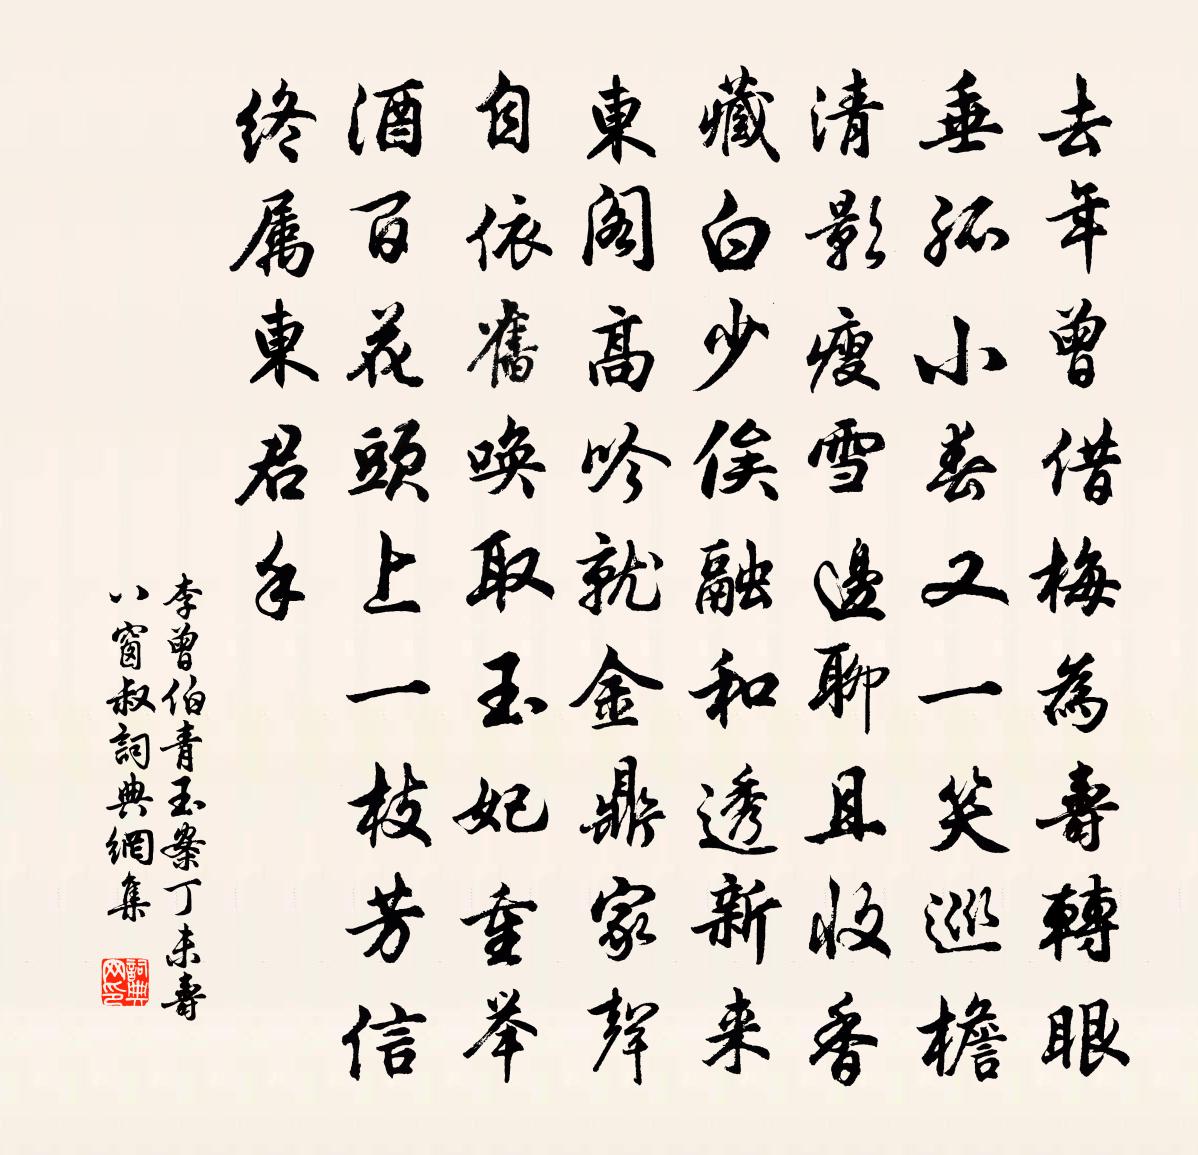 去年曾借梅為壽轉眼
垂弧小春又一笑巡檐
清影瘦雪邊聊且收香
藏白少俟融和透新来
東閣高吟就金鼎家聲
自依舊喚取玉妃重举
酒百花頭上一枝芳信
终属東君手
李曾伯青玉案丁未壽
八窗叔詞典網集
詞典网印